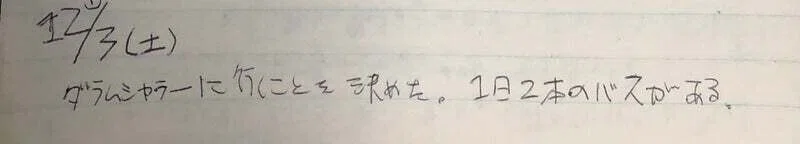 12/3(土)
ダラムシャラーに行くことを決めた。1日2本のバスがある。